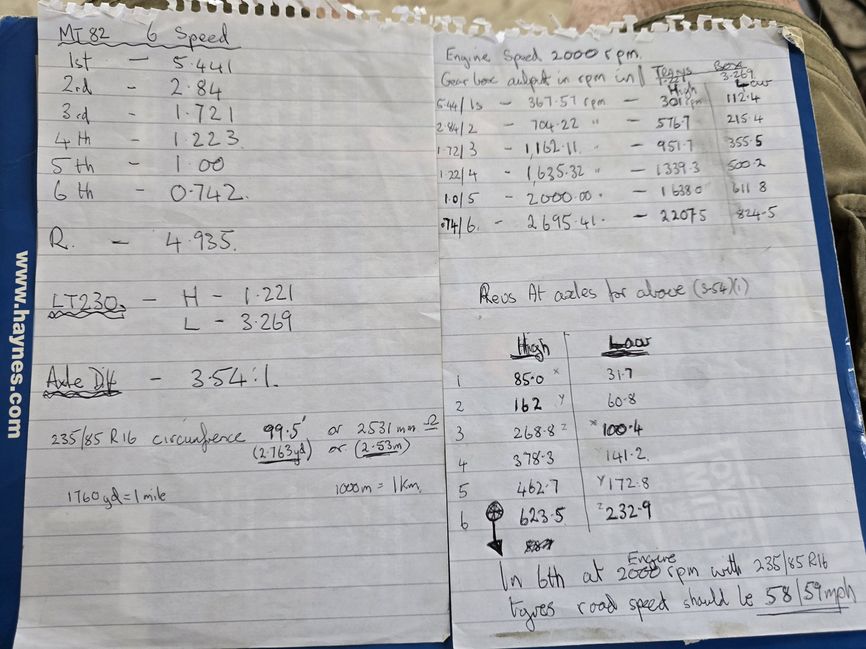 MT82 6 Speed
1st — 5.441
2rd - 2.84
3rd - 1.721
4th - 1.223.
5th - 1.00
6th - 0.742.
R. - 4.935.
LT230. - H - 1.221
L - 3.269
Axle Diff - 3.54:1.
235/85 R16 circumfrence 99.5' or 2531 mm
(2.763yd) or (2.53m)
1760yd = 1 mile 1000m = 1Km.
www.haynes.com
Engine Speed 2000 rpm.
Gearbox output in rpm in/ Trans Box
1.221 3.269
High Low
5.44/1s - 367.57 rpm - 301rpm 112.4
2.84/2 - 704.22 " - 576.7 215.4
1.72/3 - 1,162.11. " - 951.7 355.5
1.22/4 - 1,635.32 " - 1339.3 500.2
1.0/5 - 2000.00 " - 1638.0 611.8
.74/6. - 2695.41. - 2207.5 824.5
Revs At axles for above (3.54)(1)
High Low
1 85.0 x 31.7
2 162 y 60.8
3 268.8 z x 100.4
4 378.3 141.2.
5 462.7 y 172.8
6 623.5 z 232.9
In 6th at Engine 2000 rpm with 235/85 R16
tyres road speed should be 58/59mph